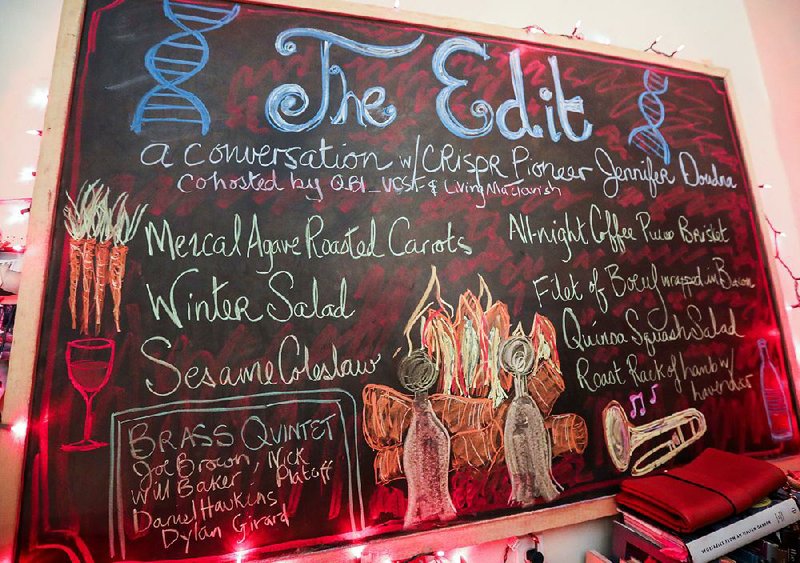 The Edit
a conversation w/ CRISPR Pioneer Jennifer Doudna
Cohosted by QBI_UCSF & LivingMaclavish
Mezcal Agave Roasted Carrots
Winter Salad
Sesame Coleslaw
All-night Coffee Puree Brisket
Filet of Boeuf wrapped in Bacon
Quinoa Squash Salad
Roast Rack of lamb w/
lavender
BRASS QUINTET
Joe Brown, Nick
Will Baker, Platoff
Daniel Hawkins
Dylan Girard